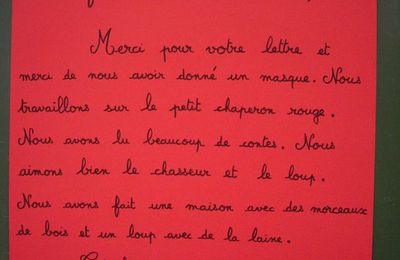 Merci pour votre lettre et
merci de nous avoir donné un masque. Nous
travaillons sur le petit chaperon rouge.
Nous avons lu beaucoup de contes. Nous
aimons bien le chasseur et le loup.
Nous avons fait une maison avec des morceaux
de bois et un loup avec de la laine.